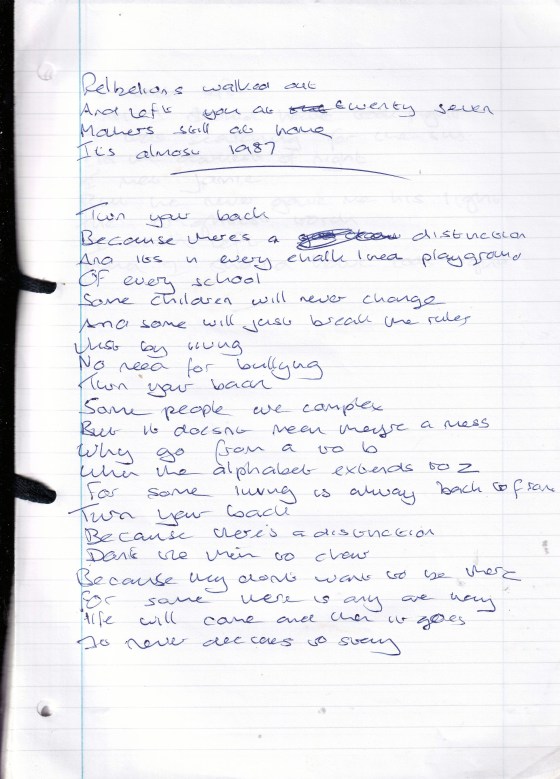 Rebelions walked out
And left you at twenty seven
Mothers still at home
It's almost 1987
Turn your back
Because theres a distinction
And its in every chalk lined playground
Of every school
Some children will never change
And some will just break the rules
Just by living
No need for bullying
Turn your back
Some people are complex
But it doesnt mean theyre a mess
Why go from a to b
When the alphabet extends to z
For some living is always back to front
Turn your back
Because there's a distinction
Dont use them to
Because they dont want to be there
For some there is any
life will come and then it goes
To never decides to